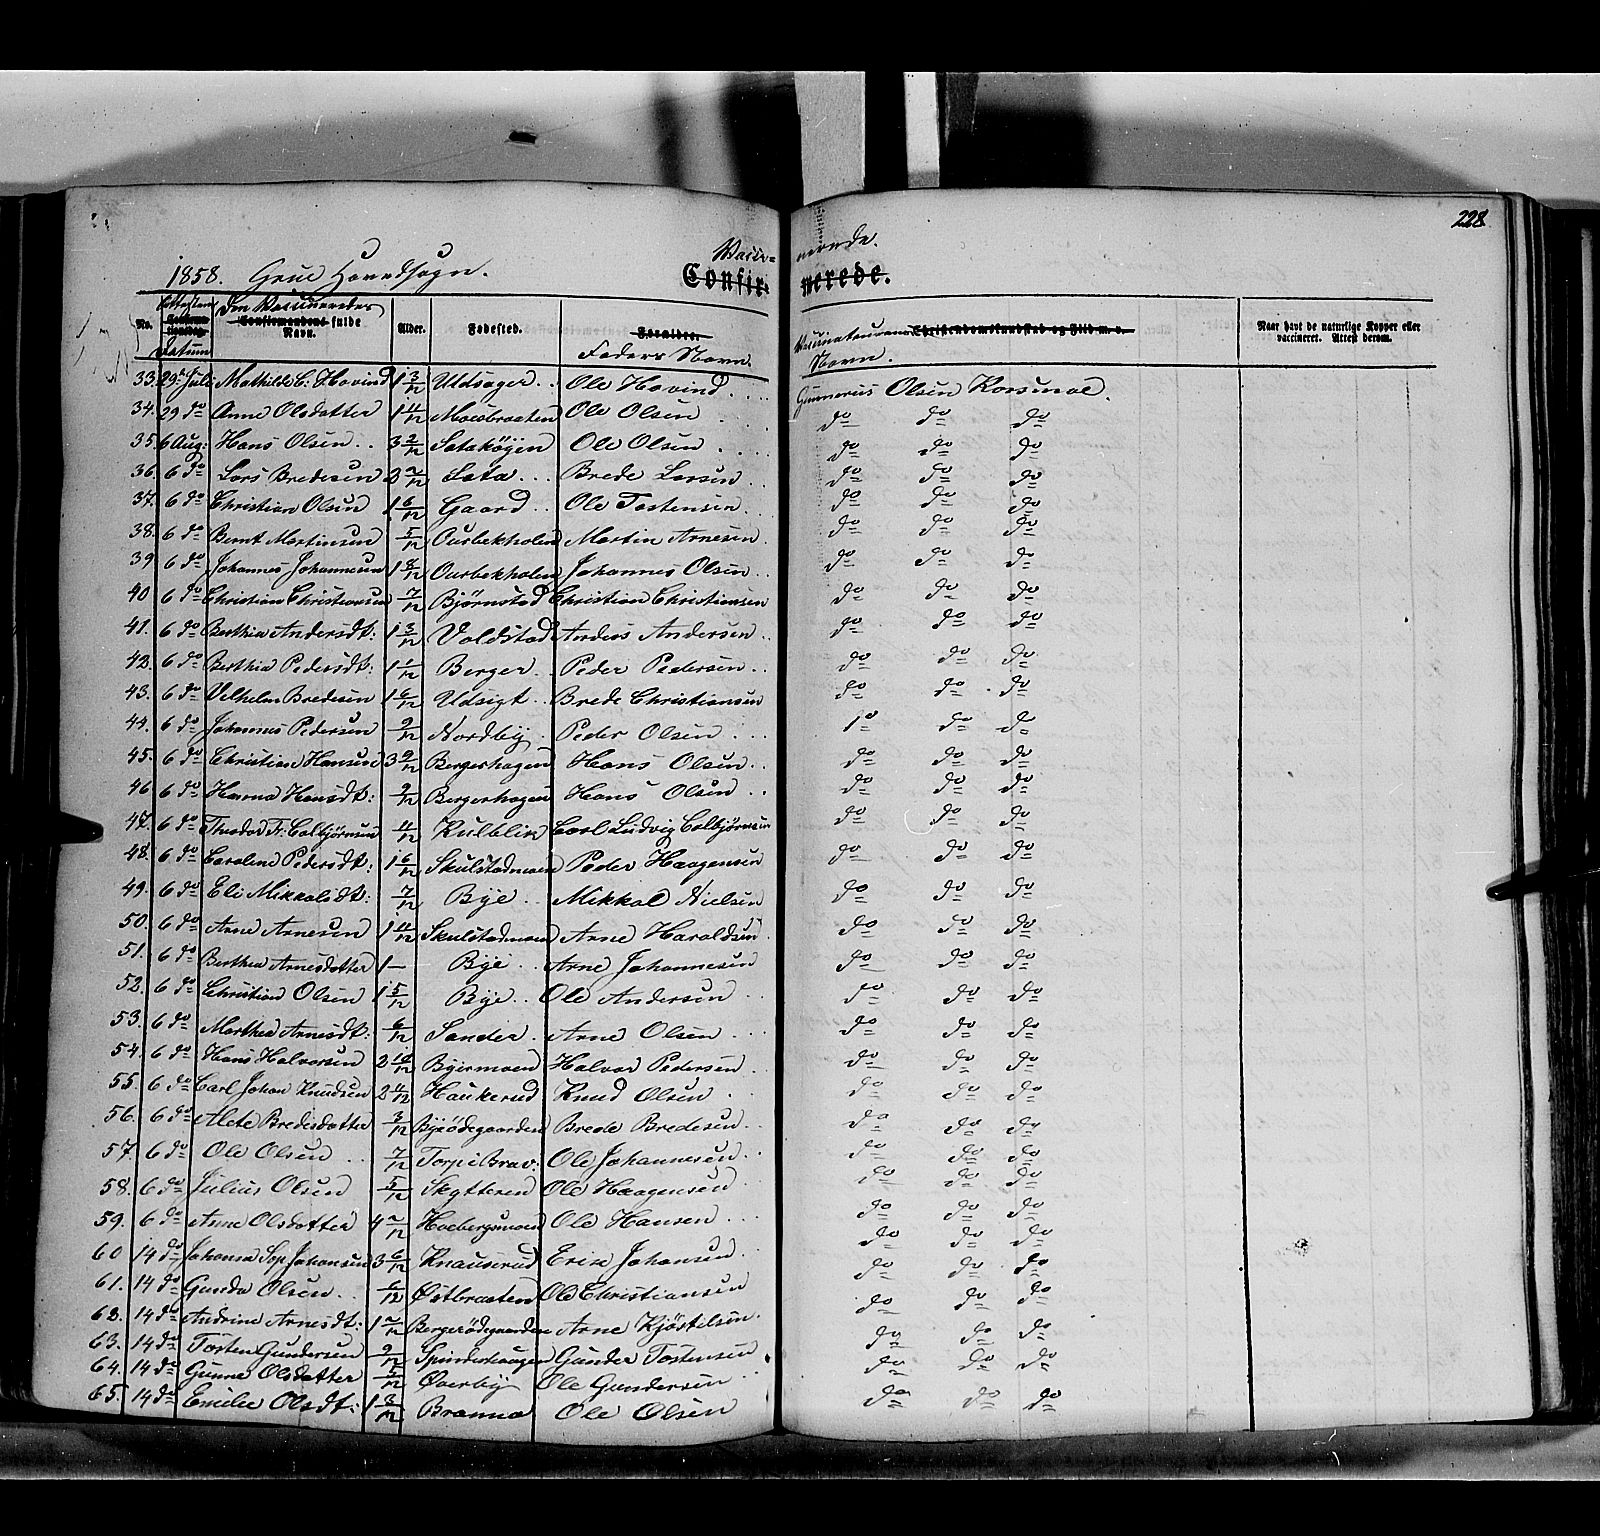 228
Vacci=
nerede.
1858. Grue Hovedsogn.
Confir=
merede.
No. Attestens Confirmationsdag Datum Den Vaccineredes Confirmandens fulde Navn. Alder. Fødested. Forældre. Faders Navn. Vaccinateurens Navn. Christendomskundskab og Flid m. v. Naar havt de naturlige Kopper eller vaccineret. Attest derom.
33. 29 Juli Mathilde C. Hovind 1 3/12 Udsager .. Ole Hovind .... Gunnerus Olsen Korsmoe.
34. 29 do Anne Olsdatter 1 11/12 Moebraaten Ole Olsen do do do
35. 6 Aug: Hans Olsen .. 3 2/12 Ole Olsen .... do do do
36. 6 do Lars Bredesen 2 Sata ... Brede Larsen .. do do do
37. 6 do Christian Olsen 1 6/12 Gaard .. Ole Tostensen .. do do do
38. 6 do Bernt Martinsen 5/12 Ousbekholen Martin Arnesen . do do do
39 6 do Johannes Johannesen 1 8/12 Ousbekholen Johannes Olsen .. do do do
40 6 do Christian Christiansen 7/12 Bjørnstad Christian Christiansen do do do
41. 6 do Berthea Andersdt: 1 3/12 Voldstad Anders Andersen .. do do do
42. 6 do Berthia Pedersdt: 1 1/12 Berger .. Peder Pedersen .. do do do
43. 6 do Vilhelm Bredesen 1 6/12 Udsigt .. Brede Christiansen do do do
44. 6 do Johannes Pedersen 9/12 Nordby . Peder Olsen ... do do do
45. 6 do Christian Hansen 3 9/12 Bergershagen Hans Olsen .. do do do
46 6 do Hanna Hansdt: 9/12 Bergerhagen Hans Olsen .. do do do
47. 6 do Theodor F: Colbjørnsen 11/12 Kulblik Carl Ludvig Colbjørnsen do do do
48. 6 do Caroline Pedersdt: 1 6/12 Skulstadmoen Peder Haagensen do do do
49. 6 do Eli Mikkelsdt: 7/12 Bye .. Mikkel Nielsen do do do
50. 6 do Arne Arnesen 1 11/12 Skulstadmoen Arne Haraldsen do do do
51. 6 do Berthea Arnesdatter 1 — Bye .. Arne Johannesen do do do
52. 6 do Christian Olsen 1 5/12 Bye .. Ole Andersen .. do do do
53. 6 do Marthea Arnesdt: 6/12 Sander . Arne Olsen .. do do do
54. 6 do Hans Halvorsen 2 10/12 Byermoen Halvor Pedersen .. do do do
55. 6 do Carl Johan Knudsen 2 4/12 Haukerud Knud Olsen . do do do
56. 6 do Alete Bredesdatter 3/12 Byeødegaarden Brede Bredesen . do do do
57. 6 do Ole Olsen .. 7/12 Torp i Brav: Ole Johannesen .. do do do
58. 6 do Julius Olsen 5/12 Skytteren Ole Haagensen .. do do do
59. 6 do Anne Olsdatter 4 Hoebergsmoen Ole Hansen ... do do do
60 14 do Johanna Sop. Johansen 3 6/12 Knauserud Erik Johansen .. do do do
61. 14 do Gunda Olsen .. 6/12 Østbraaten Ole Christiansen do do do
62. 14 do Andrine Arnesdt: 1 Bergerødegaarden Arne Kjøstelsen . do do do
63. 14 do Tosten Gundersen 9/12 Spinderhaugen Gunder Tostensen do do do
64. 14 do Gunne Olsdatter Øverby Ole Gundersen .. do do do
65. 14 do Emilie Olsdt: 1 8/12 Branna Ole Olsen do do do